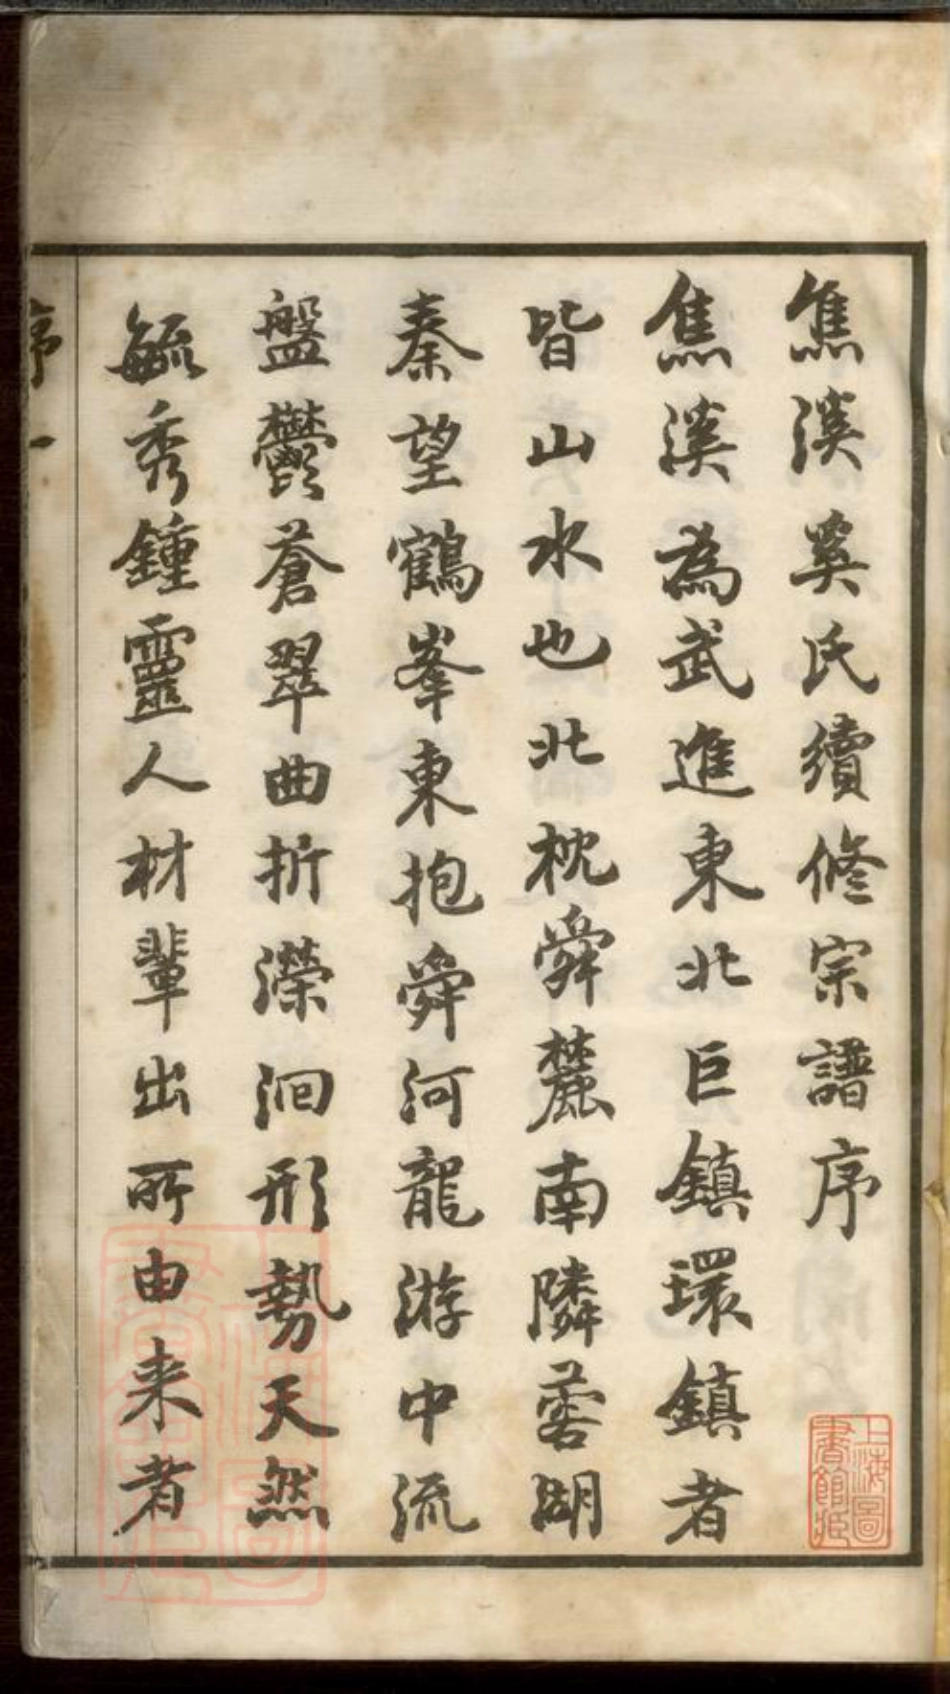 焦溪奚氏續修宗譜序
焦溪為武進東北巨鎮環鎮者
皆山水也北枕舜麓南隣蓉湖
秦望鶴峯東抱舜河龍游中流
盤鬱蒼翠曲折濴洄形勢天然
毓秀鍾靈人材輩出所由来者
序 一
上海圖書館藏
上海圖書館藏